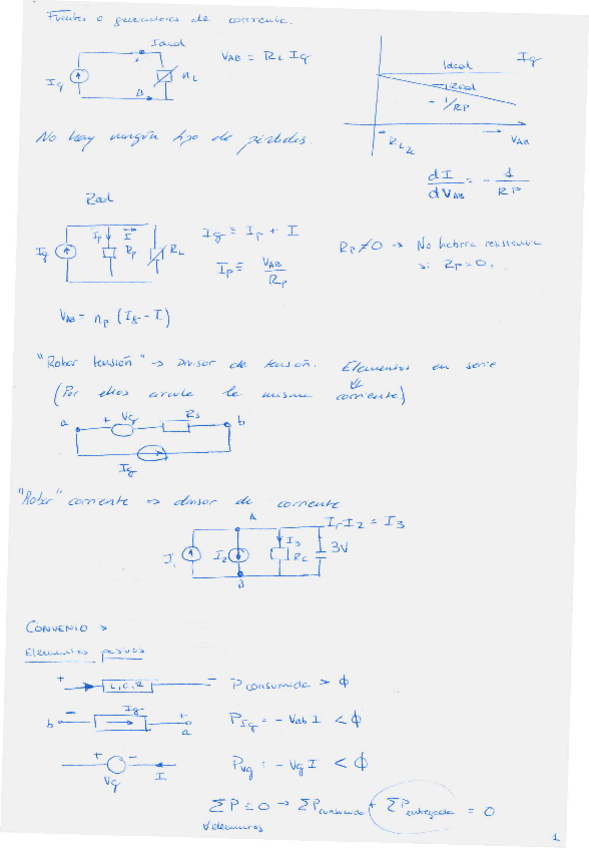 Fuentes o generadores de corriente.
Ideal
A
Ig
RL
B
VAB = RL Ig
Ideal
Ig
Real
- 1/RP
RL
VAB
No hay ningún tipo de pérdidas.
dI/dVAB = - 1/RP
Real
Ig
Ip
I
Rp
RL
Ig = Ip + I
Ip = VAB/Rp
Rp≠0 → No habrá resistencia
si Rp=0.
VAB = Rp (Ig - I)
"Robar tensión" → Divisor de tensión. Elementos en serie
(Por ellos circula la misma corriente)
a
+ Vg
Rs
b
Ig
"Robar" corriente → divisor de corriente
A
I1-I2 = I3
I3
I2
RL
3V
B
CONVENIO >
Elementos pasivos
+ L, C, R -
Pconsumida > ϕ
b - Ig + a
PIg = - Vab I < ϕ
+ - Vg I
PVg = - Vg I < ϕ
ΣP = 0 → ΣPconsumida + ΣPentregada = 0
1